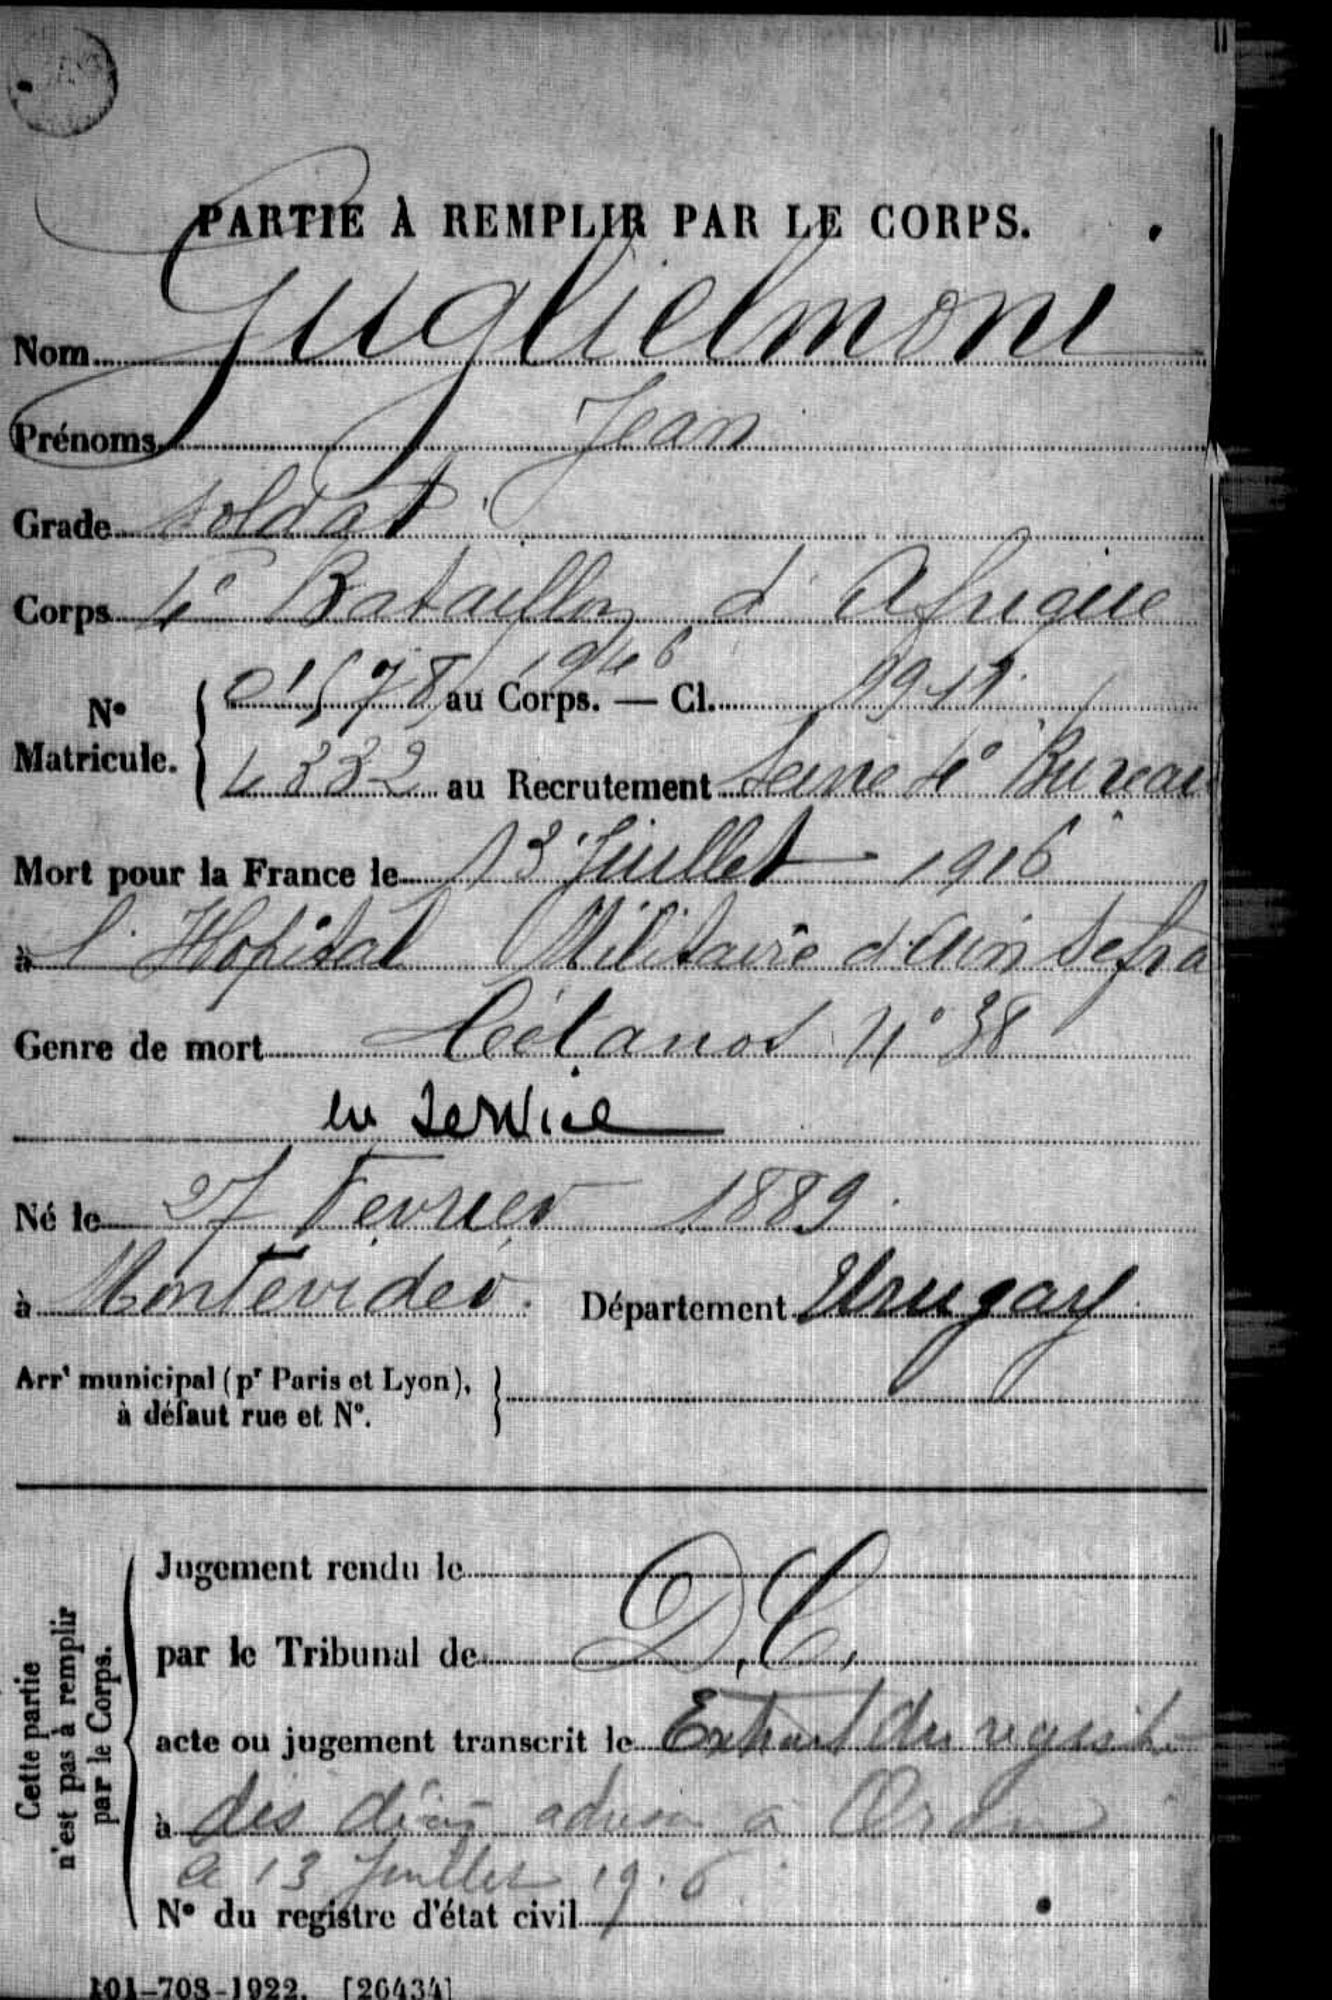 PARTIE À REMPLIR PAR LE CORPS.
Nom Guglielmoni
Prénoms Jean
Grade soldat
Corps 4e Bataillon d'Afrique
1946
N° Matricule. 01578 au Corps. — Cl. 1911
4332 au Recrutement Seine 4e Bureau
Mort pour la France le 13 Juillet 1916
à l'Hopital Militaire d'Ain Sefra
Genre de mort Tétanos N° 38
en service
Né le 27 Février 1889
à Montevideo. Département Urugay
Arrt municipal (pr Paris et Lyon),
à défaut rue et N°.
Cette partie
n'est pas à remplir
par le Corps.
Jugement rendu le
par le Tribunal de D.C.
acte ou jugement transcrit le Extrait du registre
à des décès adressé à Oran
le 13 Juillet 1916
N° du registre d'état civil
101-708-1922. [26434]